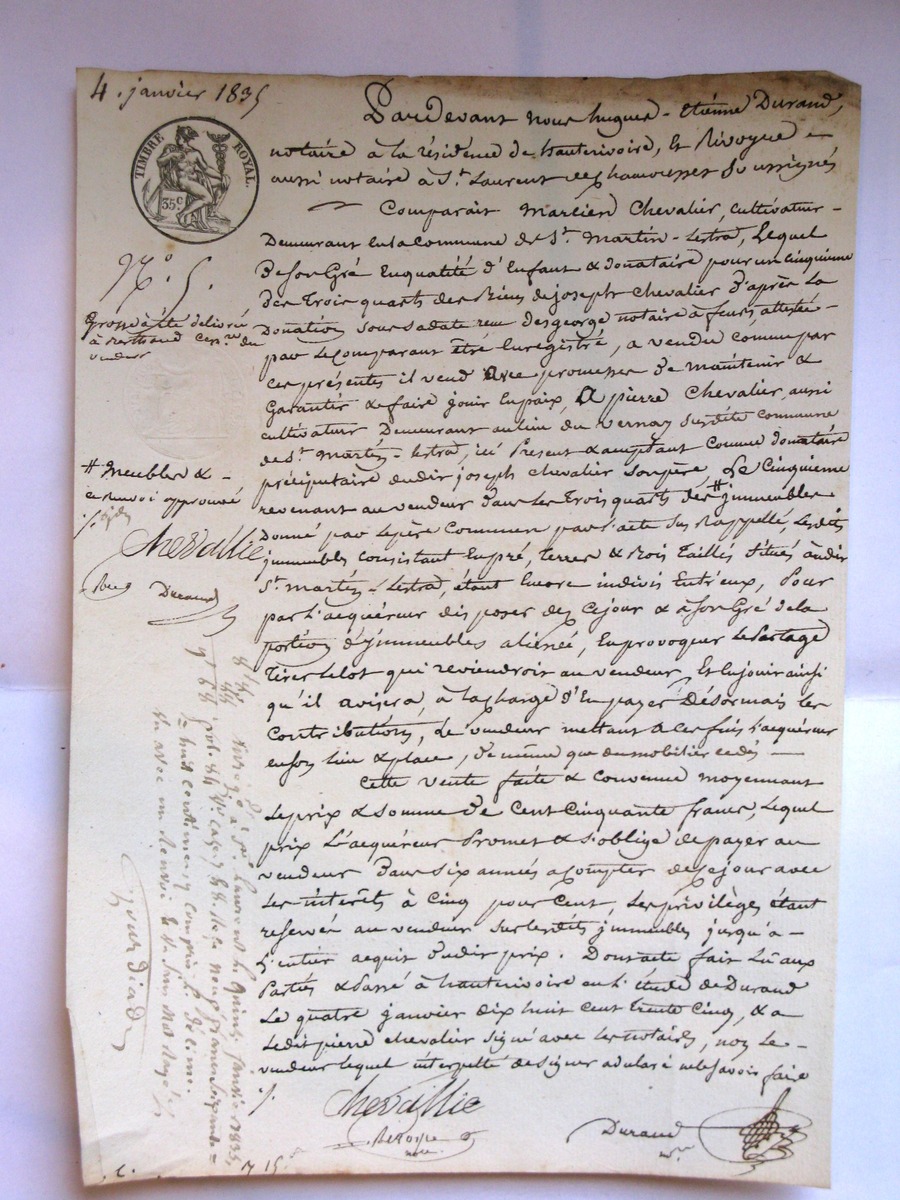 4. janvier 1835
TIMBRE ROYAL.
35c
Pardevant nous hugues-Etienne Durand,
notaire à la résidence de hauterivoire, & Rivoyre
aussi notaire à St. Laurent de Chamousset Soussignés
Comparait Marcien Chevalier, cultivateur
Demeurant en la commune de St. Martin-Lestra, Lequel
De son Gré En qualité d'Enfant & donataire pour un cinquieme
Des Trois quarts des Biens de joseph Chevalier D'après La
Donation sous sa date reçu desgeorge notaire à feurs attesté
par le Comparant être Enregistré, a vendu comme par
ces présentes il vend Avec promesse De maintenir &
Garantir & faire jouir En paix, A pierre Chevalier aussi
cultivateur Demeurant au lieu du vernay susdite commune
de St. Martin-Lestra, ici Present & acceptant comme donataire
préciputaire dudit joseph Chevalier son père, Le Cinquieme
revenant au vendeur dans Les Trois quarts des # jmmeubles
Donné par le père Commun par l'acte sus Rappellé, Lesdits
jmmeubles consistant En pré, terres & Bois Taillis situés audit
St. Martin-Lestra, étant Encore indivis Entr'eux, Pour
par L'acquéreur disposer dès ce jour & à son Gré de la
portion d'jmmeubles aliénée, En provoquer Le Partage
Tirer le lot qui reviendroit au vendeur, Et En jouir ainsi
qu'il avisera, à la charge d'En payer Désormais les
Contributions, Le vendeur mettant à ces fins l'acquéreur
en son Lieu & place, De même que du mobilier cedés
Cette vente faite & Convenue moyennant
Le prix & somme De Cent Cinquante francs, Lequel
prix L'acquéreur Promet & s'oblige de payer au
vendeur Dans six années a Compter de ce jour avec
Les intérêts à Cinq pour Cent, Les privilèges étant
reservés au vendeur sur lesdits jmmeubles jusqu'à
L'entier acquit dudit prix. Dont acte fait Lu aux
Parties & Passé à hauterivoire en L'étude de Durand
Le quatre janvier dix huit cent trente Cinq, & a
Ledit pierre chevalier signé avec Les notaires, non Le
vendeur lequel interpellé de signer a declaré ne le savoir faire
Chevallie
Durand
N.º 5.
Grosse a été delivré
à
vendeur
# Meubles &
ce renvoi approuvé
Chevallie
Durand
St. Laurent le quinze janvier 1835,
huit centimes y compris le decime.